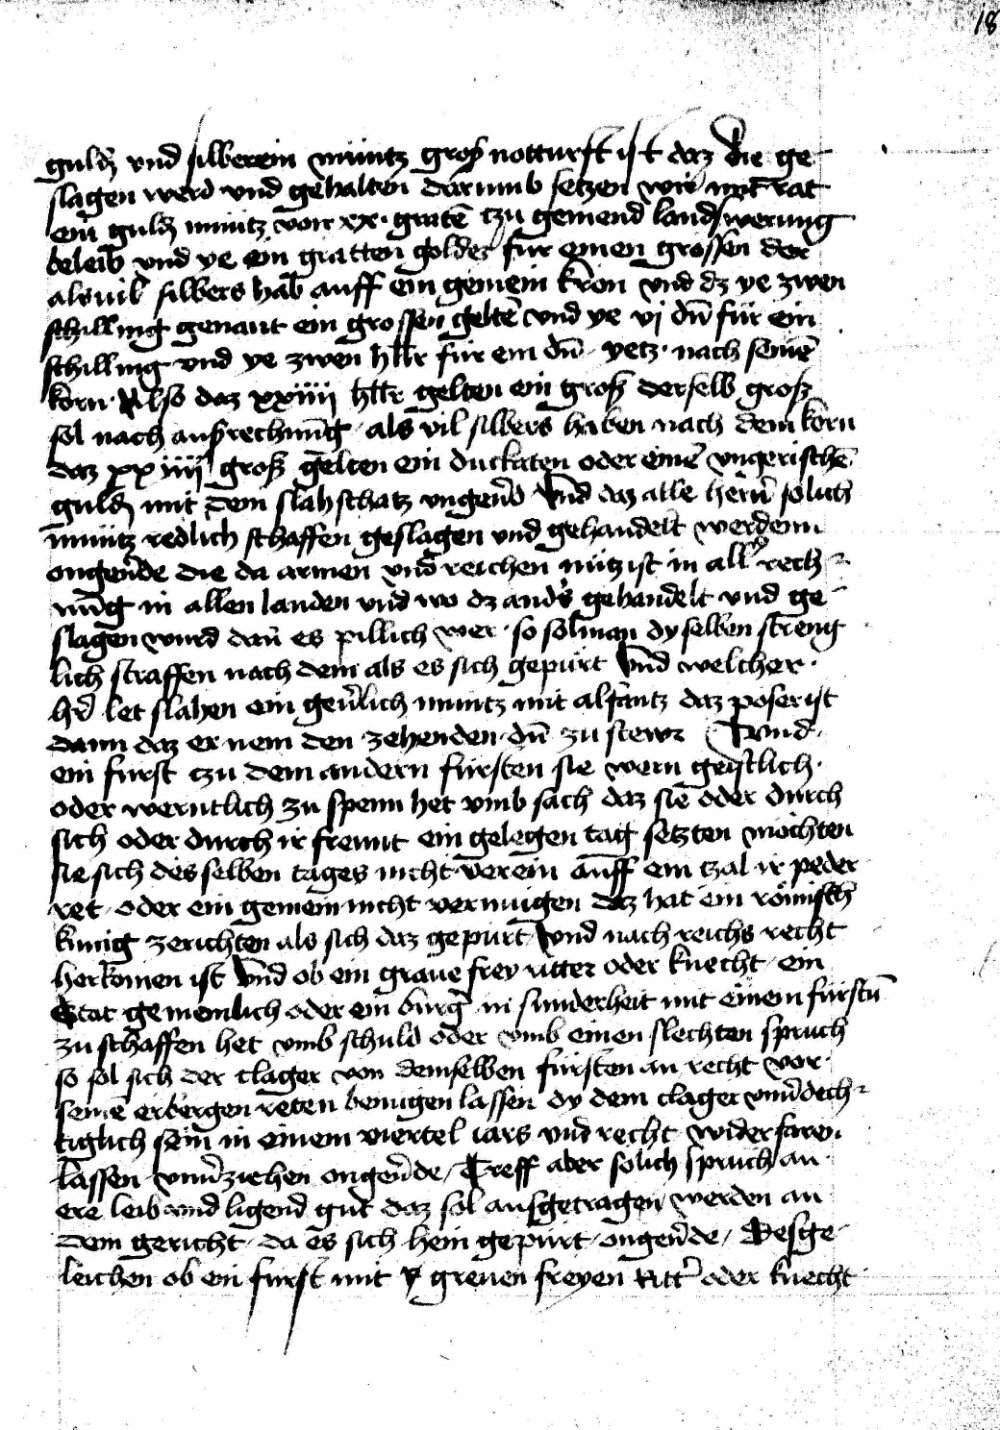 18
guldē vnd silberein müntz groß notturft ist daz die ge
slagen werd vnd gehalten darumb setzen wir mit rat
ein guldē müntz von xx · gratē tzu gemend landswerung
beleib vnd ye ein gratten goldes für einen grossen der
alsuil silbers hab auff ein gemein kron vnd dz ye zwen
schilling genant ein grossen geltē vnd ye vj dn̄ für ein
schilling vnd ye zwen hllr für ein dn̄ yetz · nach seinē
korn · Also daz xxiiii hllr gelten ein groß derselb groß
sol nach ausrechnūg als vil silbers haben nach dem korn
daz xxiiij groß gelten ein duckaten oder einē vngerischē
guldē mit dem slahschatz vngeūd Vnd daz alle hern̄ solich
müntz redlich schaffen geslagen vnd gehandelt werdenn
ongeūde die da armen vnd reichen nütz ist in all' rech
nūg in allen landen vnd wo dz and's gehandelt vnd ge
slagen wurd dan̄ es pillich wer · so sol man dy selben streng
lich straffen nach dem als es sich gepürt Vnd welcher ·
h'r let slahen ein geūlich müntz mit alfantz daz poser ist
dann daz er nem den zehenden · dn̄ zu stewr Vnd ·
ein furst tzu dem andern fürsten sie wern geistlich ·
oder werntlich zu spenn het vmb sach daz sie oder durch
sich oder durch ir freunt ein gelegen tag setzten möchten
sie sich des selben tages nicht verein auff ein tzal ir peder
ret oder ein gemein nicht vermügen daz hat ein römisch
kunig zerichten als sich daz gepurt Vnd nach reichs recht
herkomen ist Vnd ob ein graue frey ritter oder knecht ein
Stat gemeinlich oder ein burg' in sunderheit mit einem fürstn̄
zu schaffen het vmb schuld oder vmb einen slechten spruch
so sol sich der clager von demselben fürsten an recht vor ·
seinē erbergen reten benügen lassen dy dem clager vnu'dech
tiglich sein in einem viertel iars vnd recht widerfaren
lassen vnu'ziehen ongeūde / Treff aber solich spruch an
ere leib vnd ligend gut daz sol ausgetragen werden an
dem gericht da es sich hein gepürt ongeūde / Desge
leichen ob ein furst mit greuen freyen Ritt' oder knecht